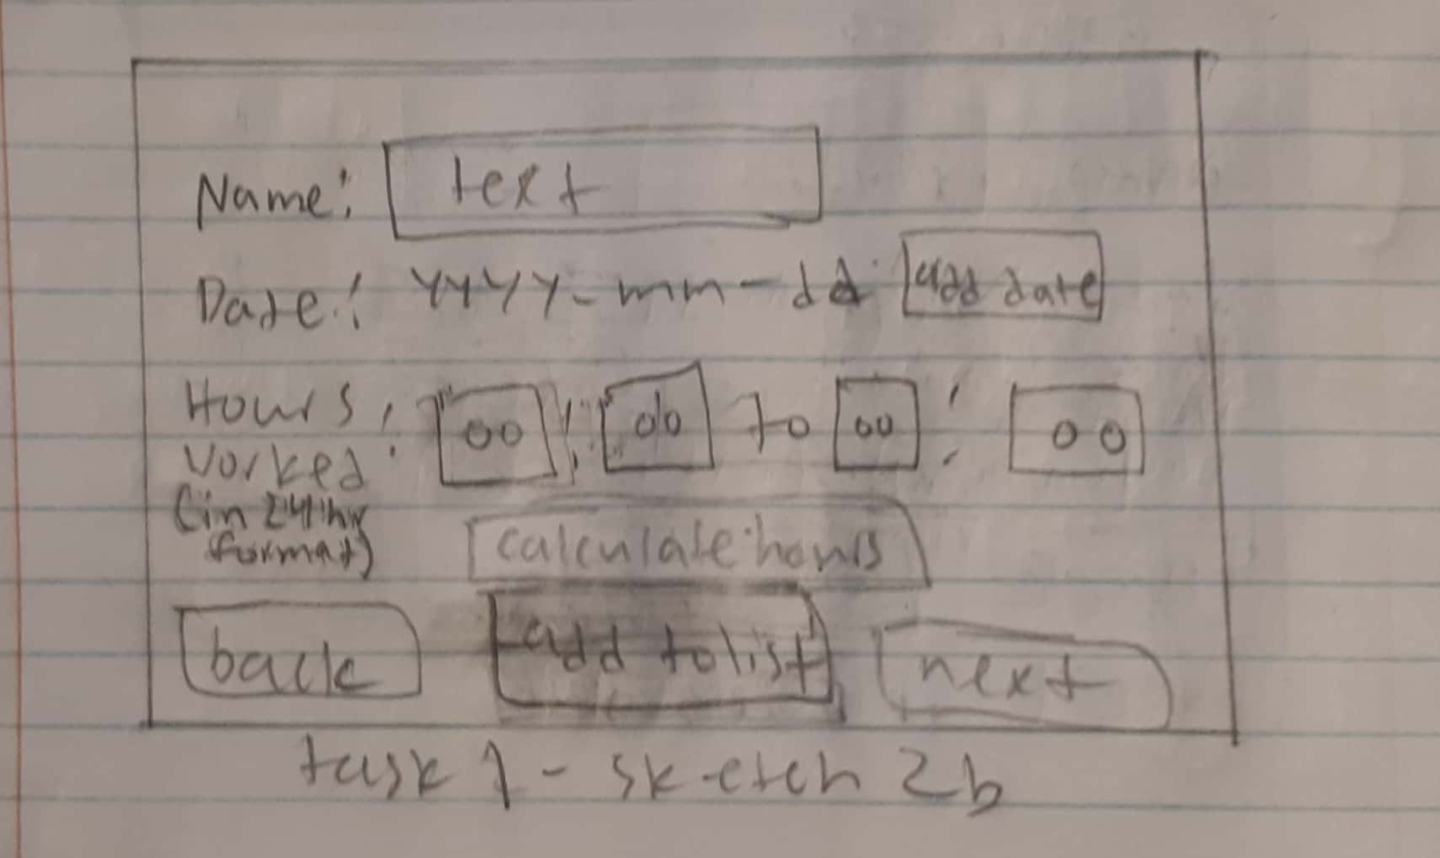 Name: text
Date: yyyy-mm-dd add date
Hours : 00 : 00 to 00 : 00
Worked
(in 24hr
format)
calculate hours
back add to list next
task 1 - sketch 2b